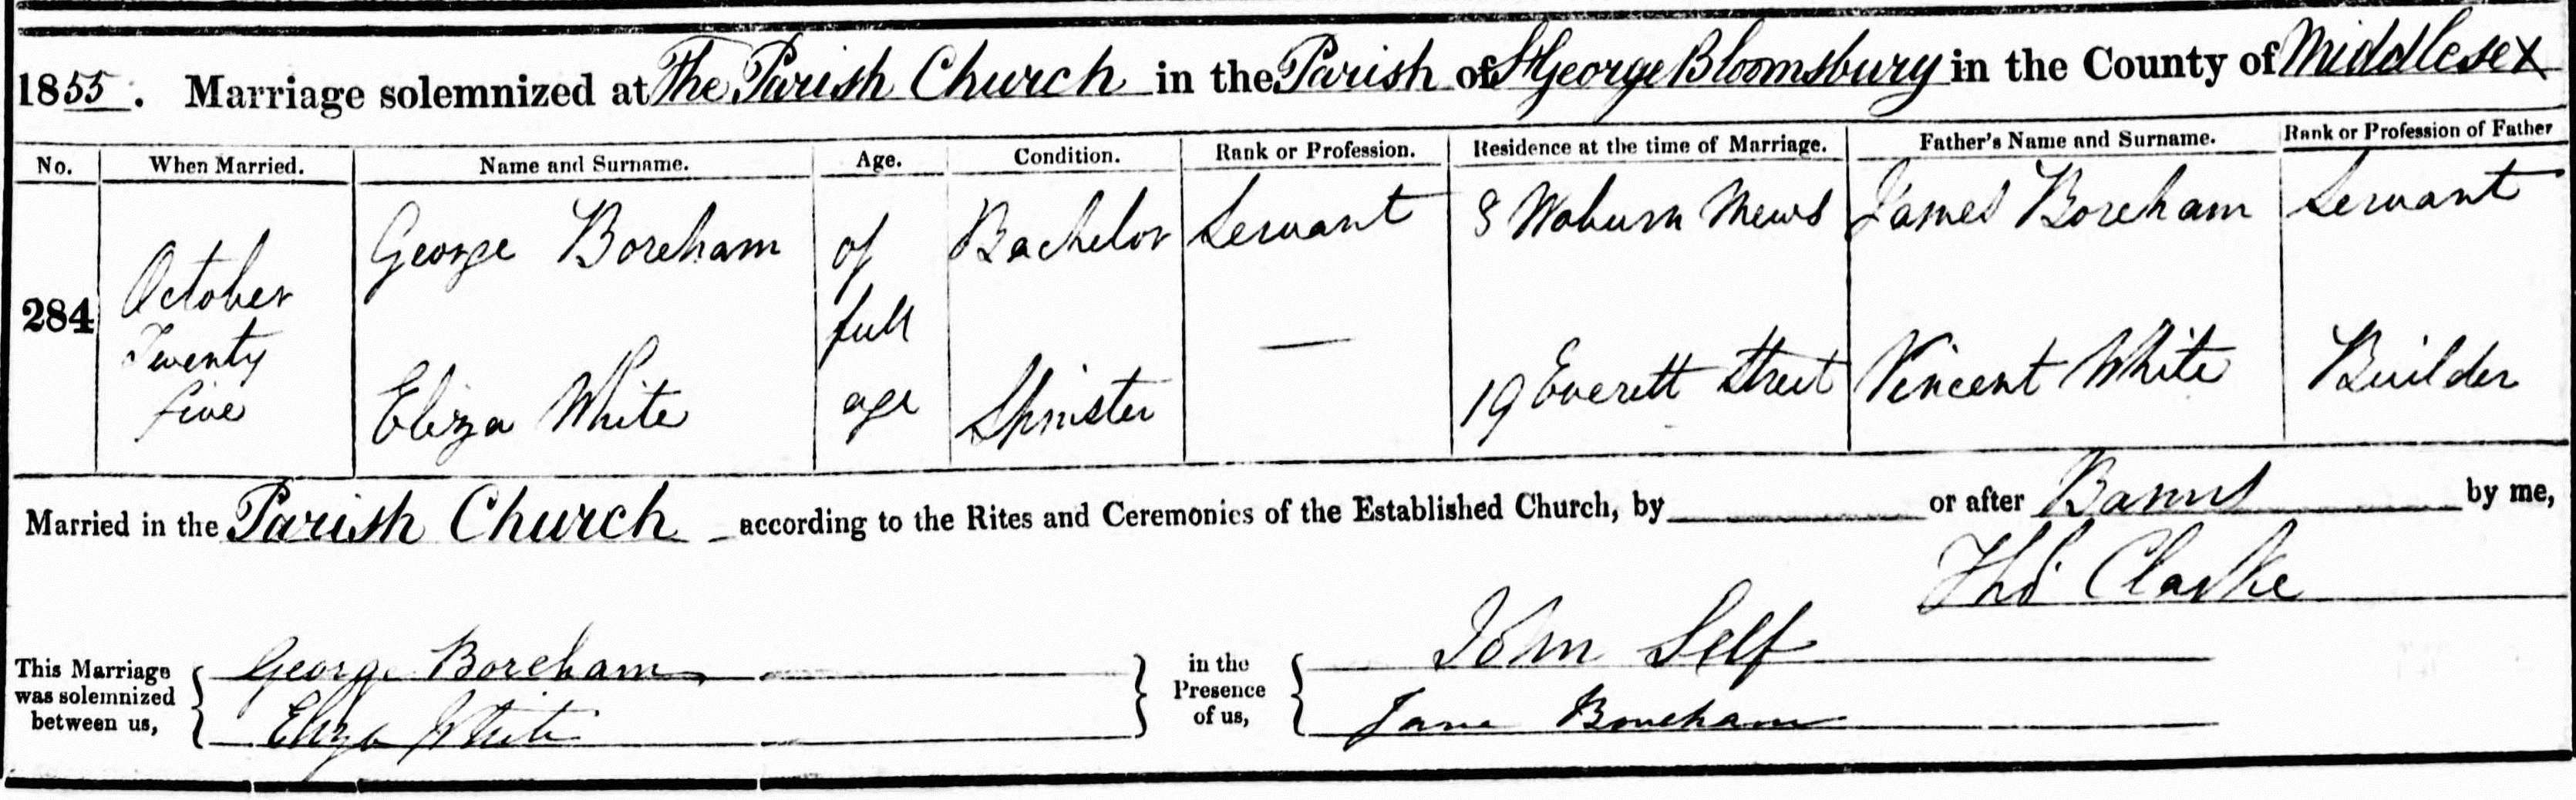 1855. Marriage solemnized at The Parish Church in the Parish of St George Bloomsbury in the County of Middlesex
No. When Married. Name and Surname. Age. Condition. Rank or Profession. Residence at the time of Marriage. Father's Name and Surname. Rank or Profession of Father
284 October Twenty five
George Boreham of full age Bachelor Servant 8 Woburn Mews James Boreham Servant
Eliza White Spinster — 19 Everett Street Vincent White Builder
Married in the Parish Church according to the Rites and Ceremonies of the Established Church, by or after Banns by me,
Thos Clarke
This Marriage was solemnized between us,
George Boreham
Eliza White
in the Presence of us,
John Self
Jane Boreham